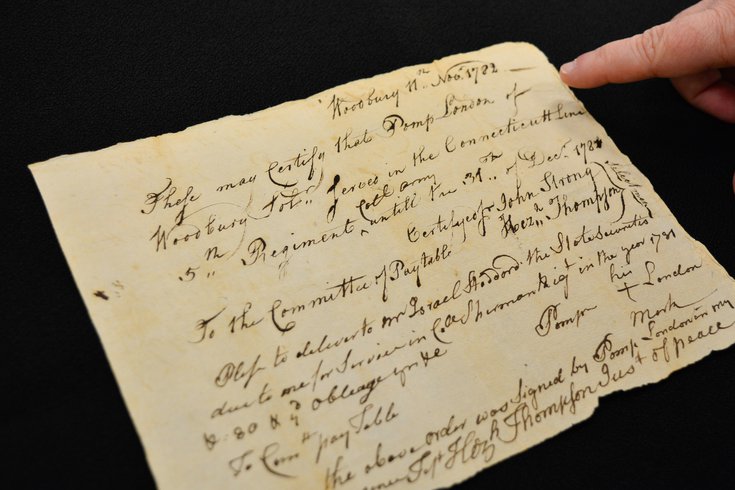 Woodbury 11th Nov. 1782
These may Certify that Pomp London of
Woodbury Solr,, Served in the Connecticutt Line
5th,, Regiment Colo army untill the 31th,, of Decr. 1781
Certifyed pr John Strong
Hezn Thompson
Select men
To the Committee of Paytable
Plese to deliver to mr Israel Stoddord the State Securitis
due to me for Service in Colo Shermans Regt in the year 1781
& so yd oblidge yrs &c
Pomp his + London
Mark
To Comtt pay Table
the above order was Signed by Pomp London in my
Hezh Thompson Just of peace